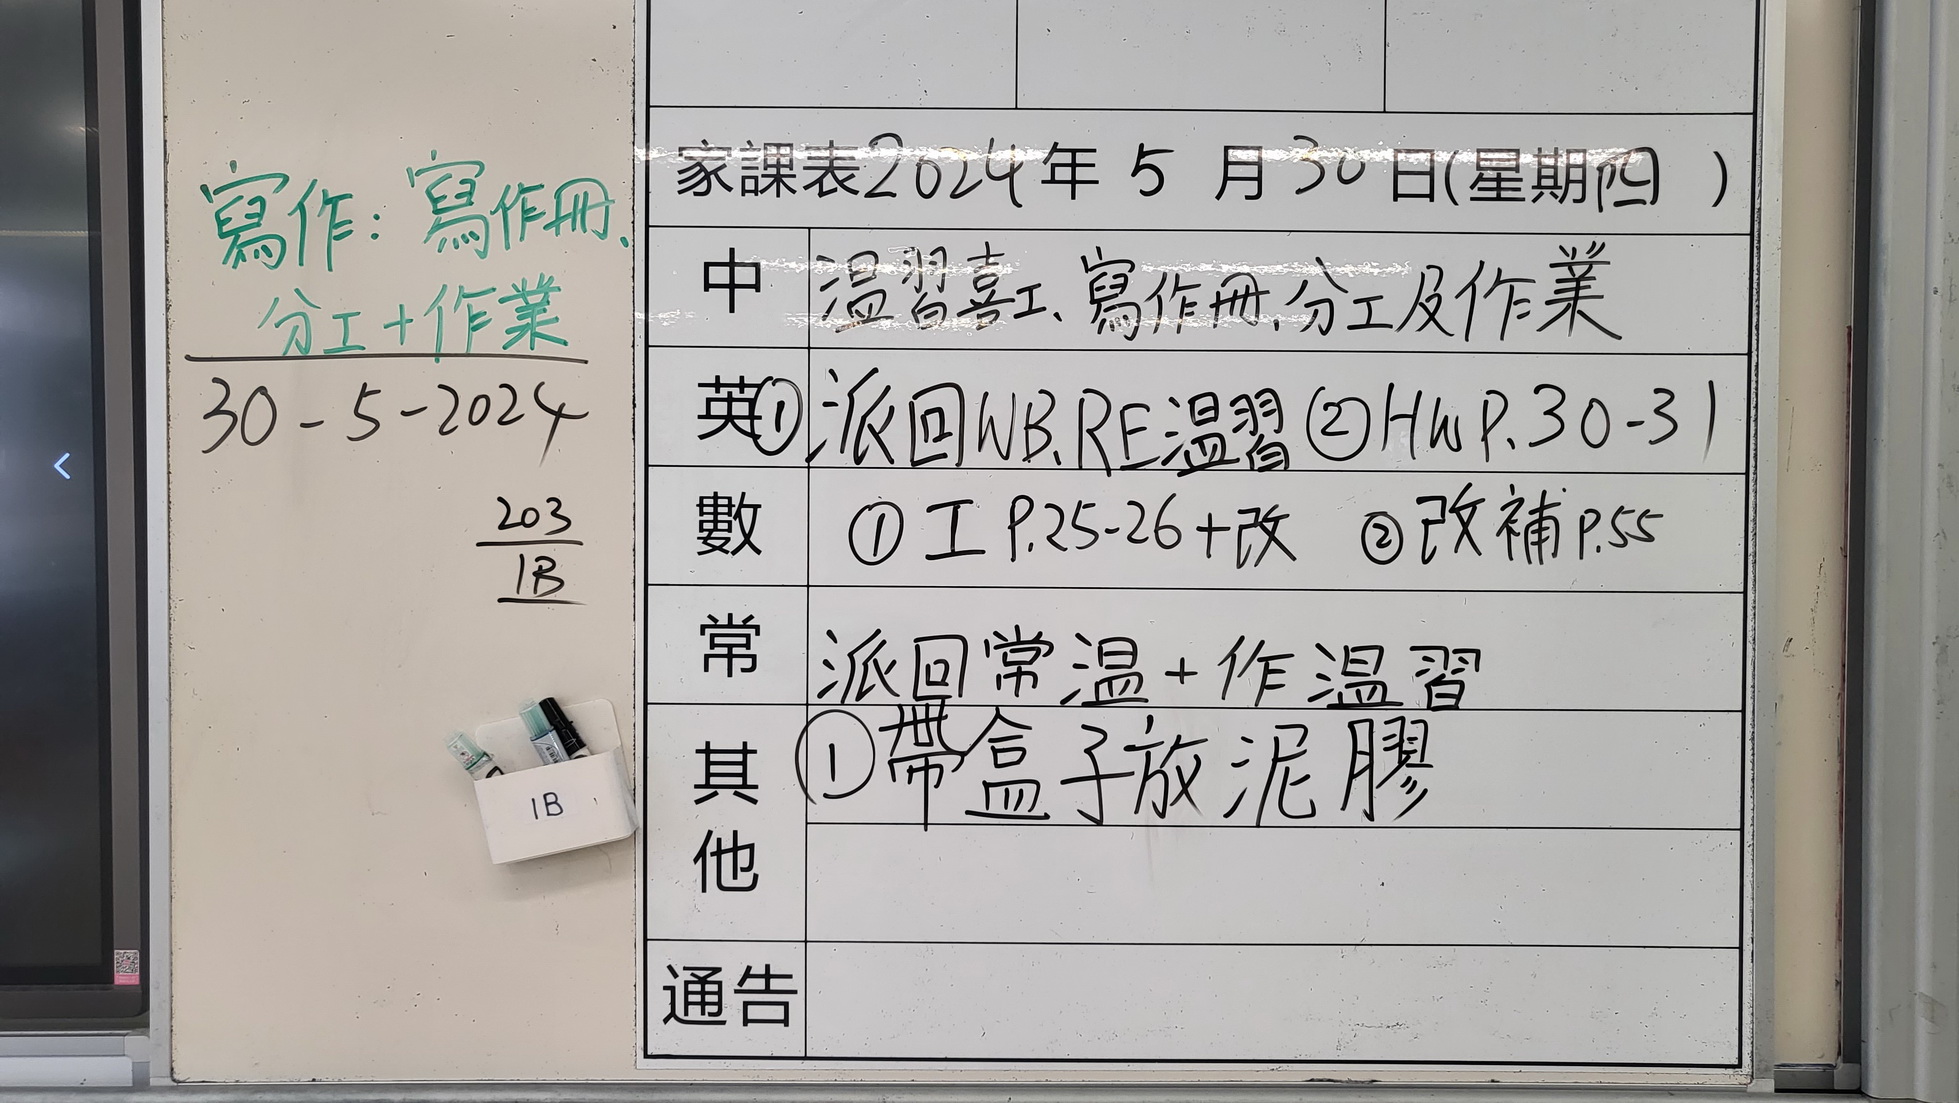 寫作：寫作冊、
分工+作業
30-5-2024
203
1B
1B
家課表2024年5月30日(星期四)
中 温習喜工、寫作冊、分工及作業
英 ①派回WB、RE温習 ②HW P.30-31
數 ①工 P.25-26+改 ②改補 P.55
常 派回常温+作温習
其他 ①帶盒子放泥膠
通告